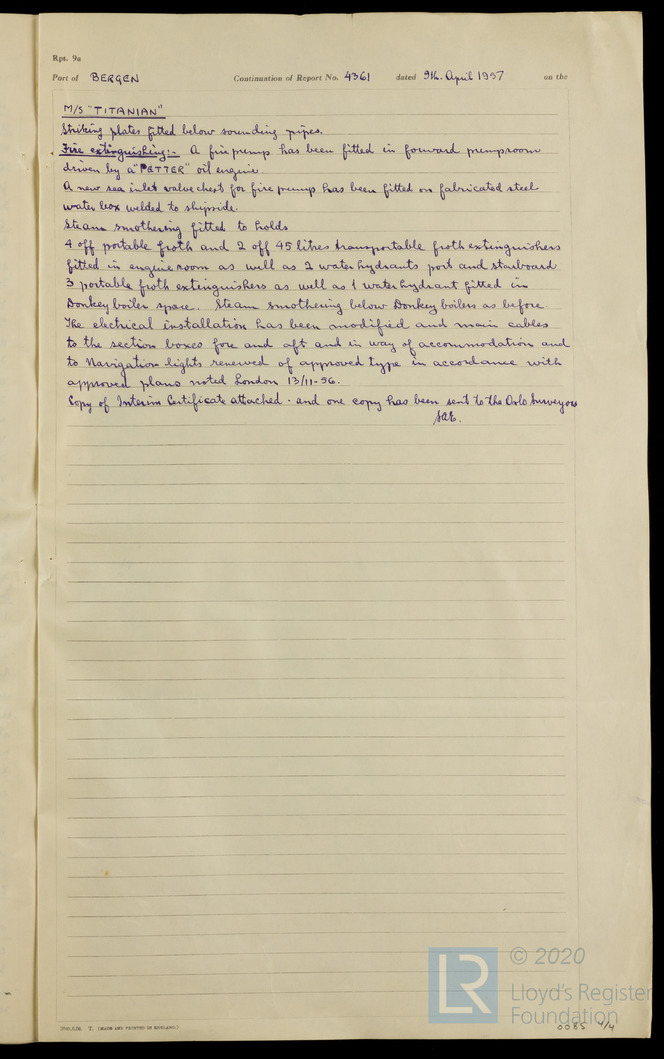 Rpt. 9a
Port of BERGEN Continuation of Report No. 4361 dated 9th. April 1957 on the
M/S "TITANIAN"
Striking plates fitted below sounding pipes.
Fire extinguishing:- A fire pump has been fitted in forward pumproom
driven by a "PETTER" oil engine.
A new sea inlet valve chest for fire pump has been fitted on fabricated steel
water box welded to shipside.
Steam smothering fitted to holds
4 off portable froth and 2 off 45 litres transportable froth extinguishers
fitted in engine room as well as 2 water hydrants port and starboard
3 portable froth extinguishers as well as 1 water hydrant fitted in
Donkey boiler space. Steam smothering below Donkey boilers as before.
The electrical installation has been modified and main cables
to the section boxes fore and aft and in way of accommodation and
to Navigation lights renewed of approved type in accordance with
approved plans noted London 13/11-56.
Copy of Interim Certificate attached - and one copy has been sent to the Oslo Surveyors
T. (MADE AND PRINTED IN ENGLAND.)
LR
© 2020
Lloyd's Register
Foundation
0085 4/4